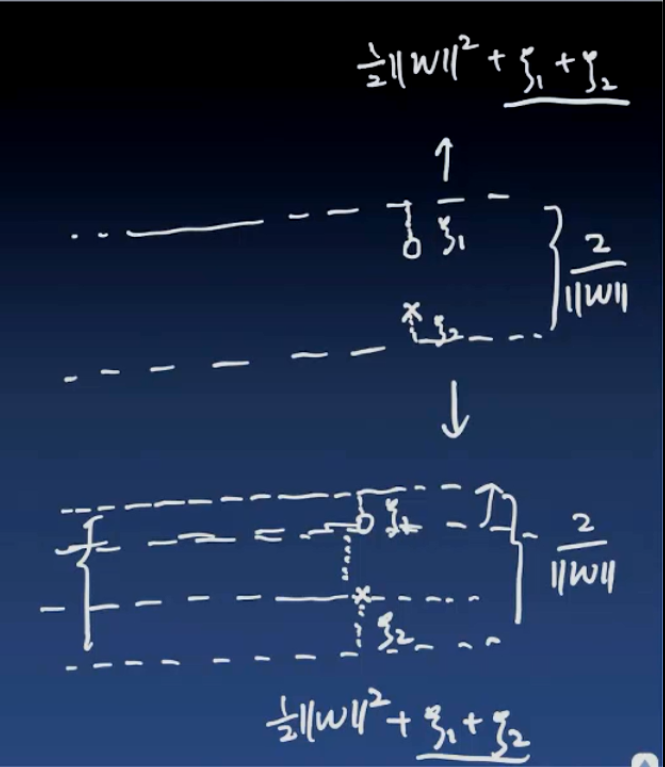 ½||W||² + ξ₁ + ξ₂
ξ₁
2/||W||
ξ₂
ξ₁
2/||W||
ξ₂
½||W||² + ξ₁ + ξ₂